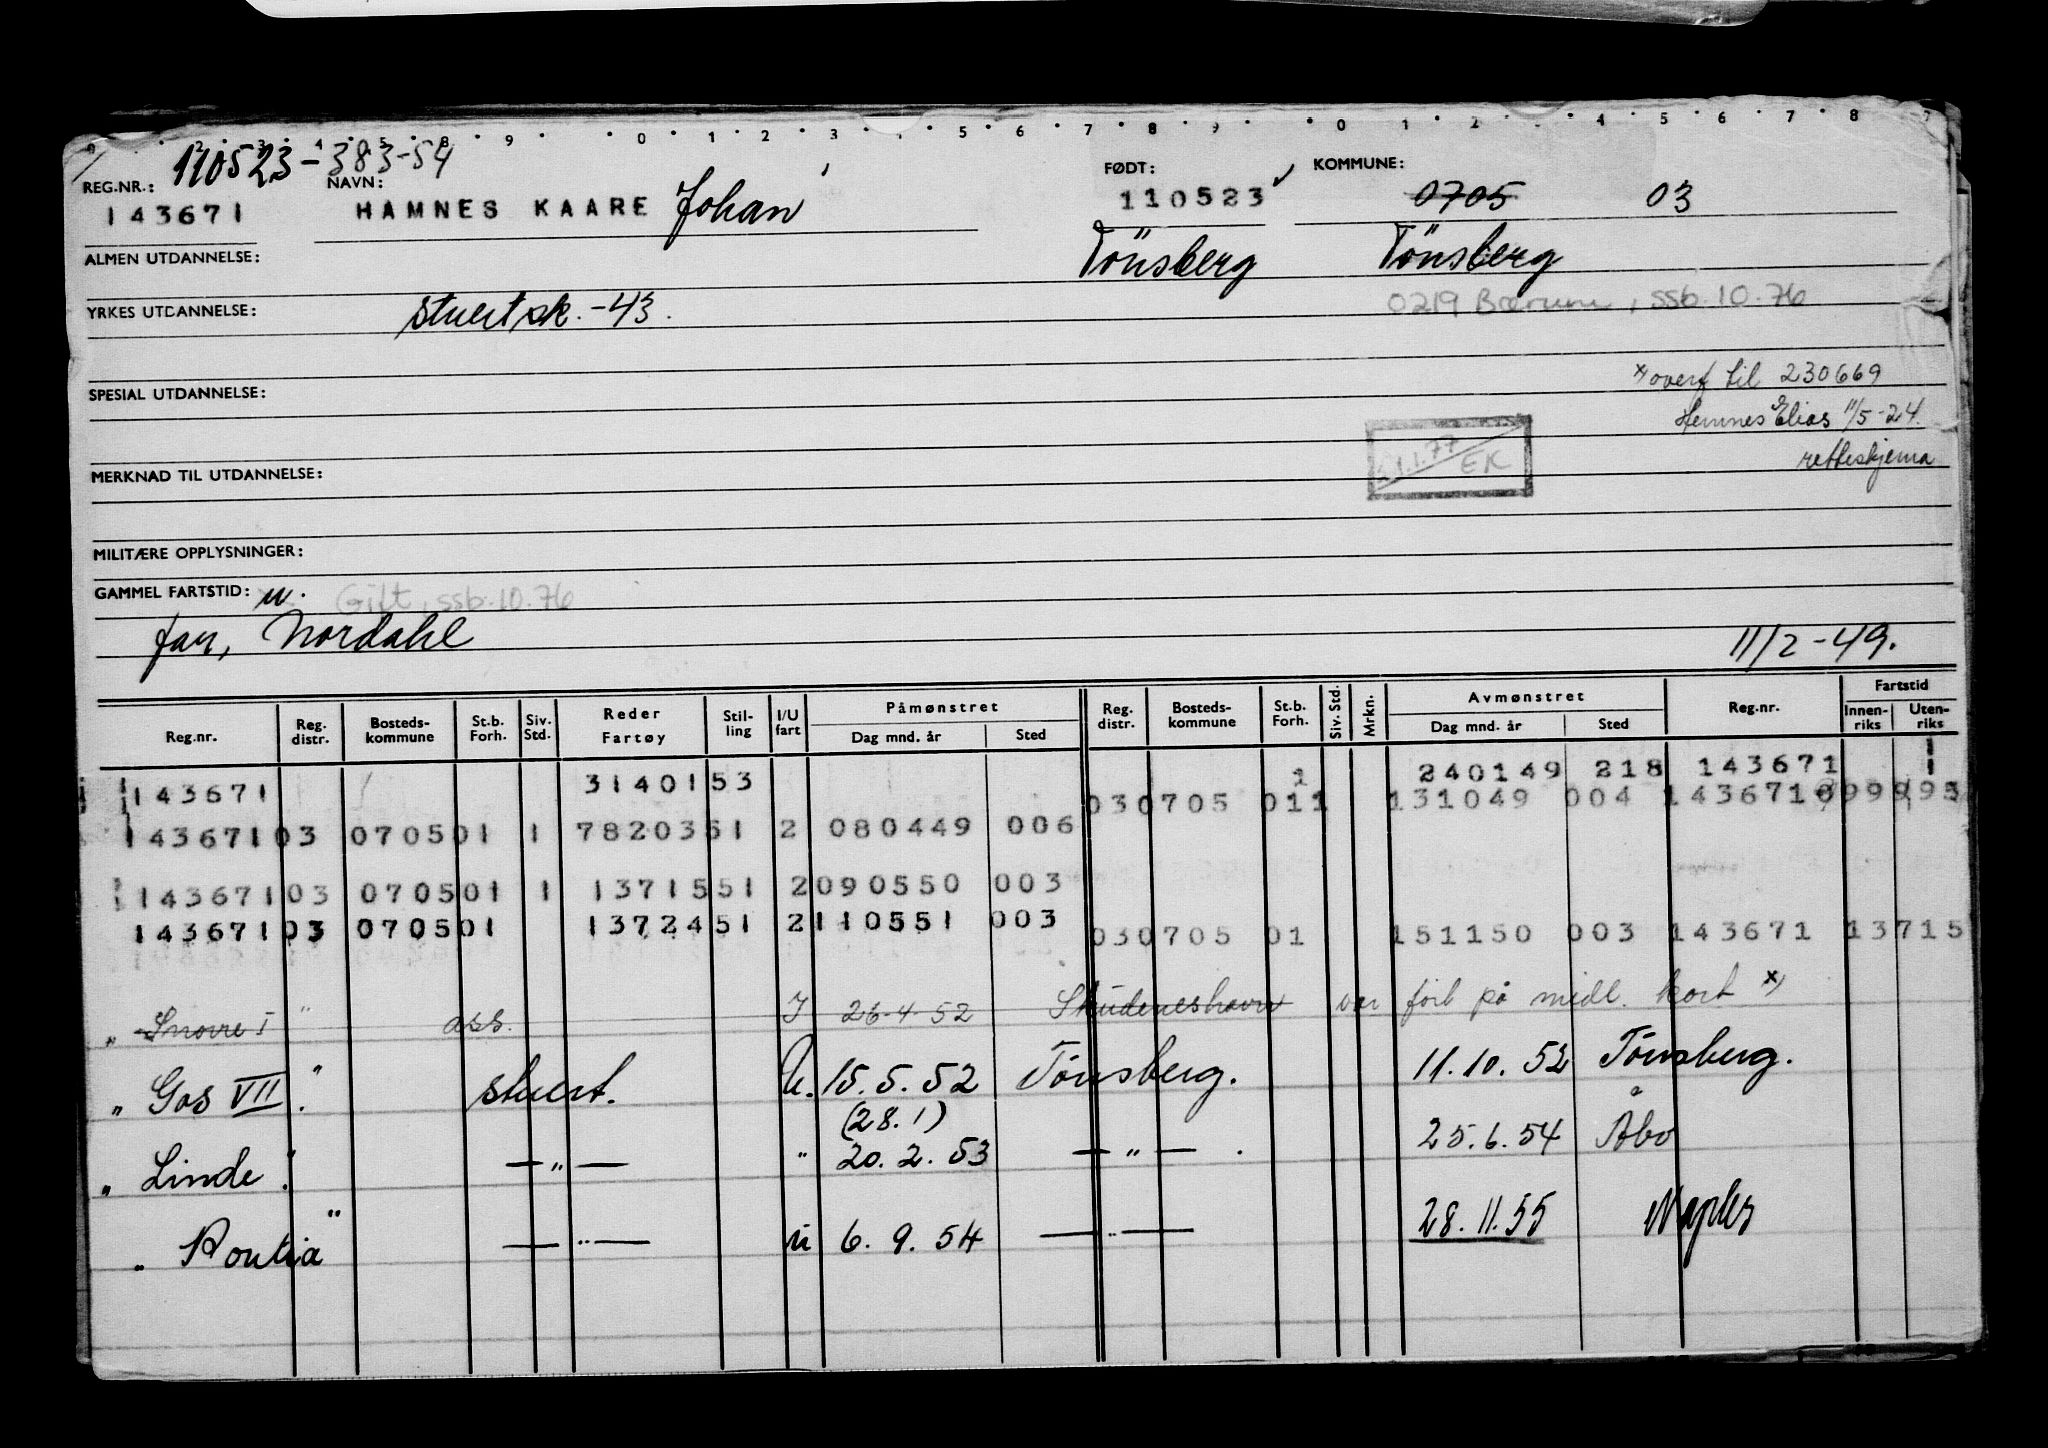 110523-383-54
REG.NR.: NAVN: FØDT: KOMMUNE:
143671 HAMNES KAARE Johan 110523 0705 03
ALMEN UTDANNELSE: Tönsberg Tönsberg
YRKES UTDANNELSE: stuertsk. -43. 0219 Bærum, ssb.10.76
SPESIAL UTDANNELSE: x) overf til 230669
Hemnes Elias 11/5-24.
21.1.77 EK
MERKNAD TIL UTDANNELSE: retteskjema
MILITÆRE OPPLYSNINGER:
GAMMEL FARTSTID: u. Gift, ssb.10.76
far, Nordahl 11/2-49.
Reg.nr. Reg. distr. Bosteds-kommune St.b. Forh. Siv. Std. Reder Fartøy Stil-ling I/U fart Påmønstret Dag mnd. år Sted Reg. distr. Bosteds-kommune St.b. Forh. Siv. Std. Mrkn. Avmønstret Dag mnd. år Sted Reg.nr. Fartstid Innen-riks Uten-riks
143671 3140153 240149 218 143671 1
030705 011 131049 004 143671
143671 03 0705 01 1 7820351 2 080449 006
143671 03 0705 01 1 1371551 2 090550 003
143671 03 0705 01 1372451 2 110551 003
030705 01 151150 003 143671 13715
" Snorre I " ass. I 26-4-52 Skudeneshavn var förb på midl. kort x)
" Gos VII " stuert. U. 15.5.52 Tönsberg. 11.10.52 Tönsberg.
(28.1)
" Linde " — " — " 20.2.53 — " — . 25.6.54 Åbo
" Pontia " — " — u 6.9.54 — " — 28.11.55 Naples